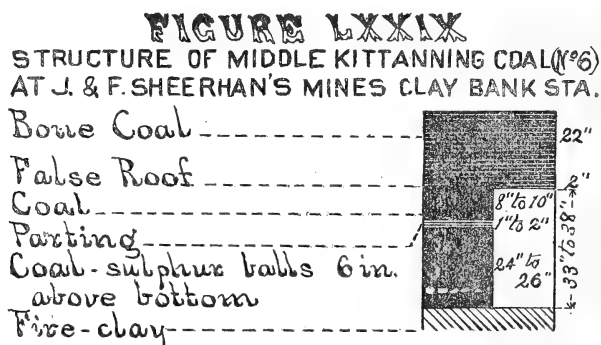 FIGURE LXXIX
STRUCTURE OF MIDDLE KITTANNING COAL (No 6)
AT J. & F. SHEERHAN'S MINES CLAY BANK STA.
Bone Coal 22"
False Roof 2"
Coal 8" to 10"
Parting 1" to 2"
33" to 38"
Coal-sulphur balls 6 in. 24" to
above bottom 26"
Fire-clay